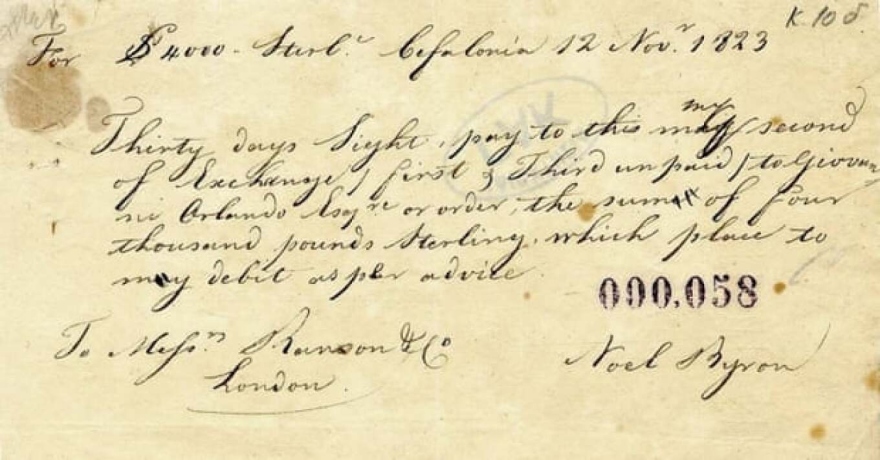 K. 108
For £ 4000 - Sterl.c Cefalonia 12 Nov.r 1823
Thirty days Sight, pay to this my second
of Exchange / first & Third unpaid / to Giovan
ni Orlando Esq.re or order, the sum of four
thousand pounds Sterling, which place to
my debit as per advice.
000,058
To Mess.rs Ranson & Co
London.
Noel Byron